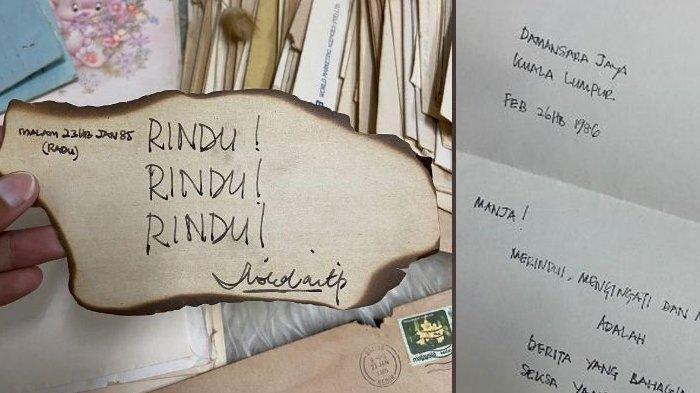 MALAM 23HB JAN 85
(RABU)
RINDU!
RINDU!
RINDU!
malaysia
DAMANSARA JAYA
KUALA LUMPUR
FEB 26HB 1986
MANJA!
MERINDUI, MENGINGATI DAN M
ADALAH
BERITA YANG BAHAGI
SEKSA YANG